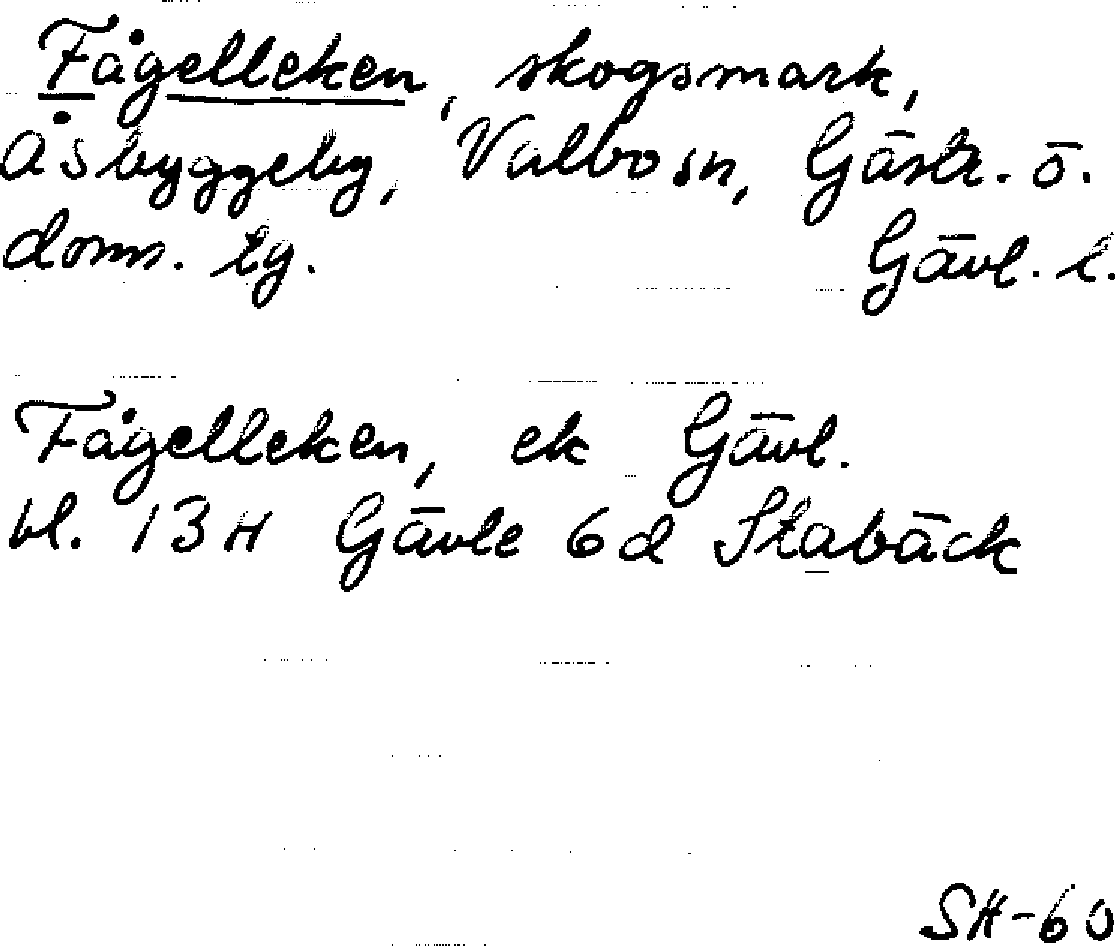 Fågelleken, skogsmark,
Åsbyggeby, Valbo sn, Gästr. ö.
doms. tg. Gävl. l.
Fågelleken, ek Gävl.
bl. 13H Gävle 6d Stabäck
SH-60